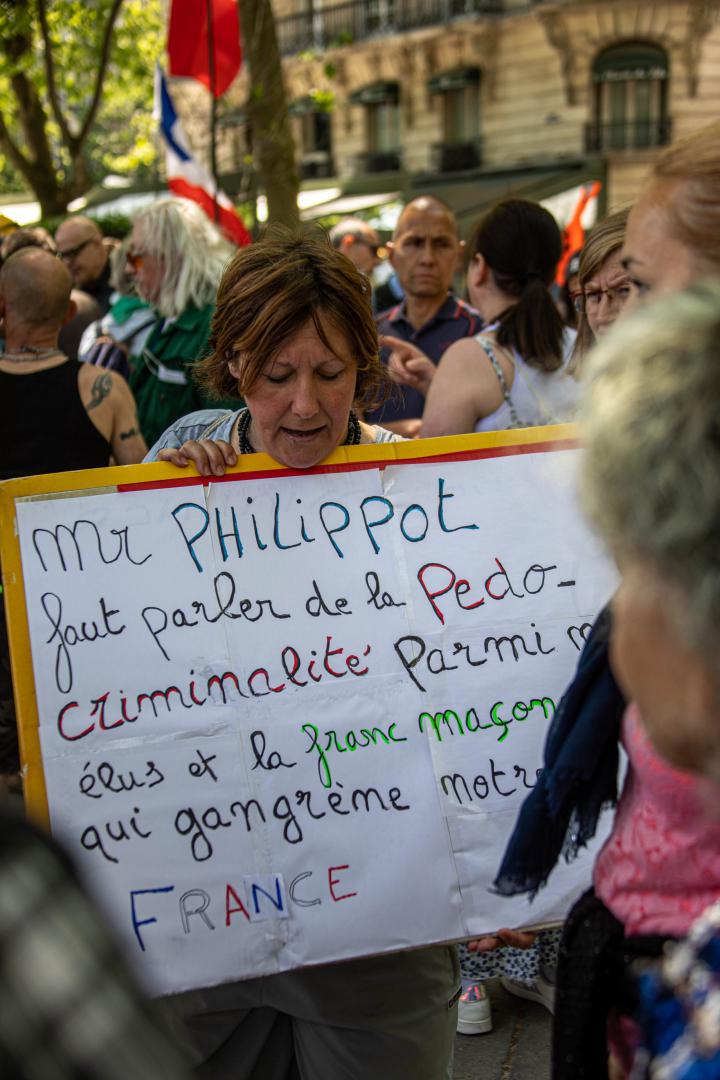 Mr PHiLiPPOt
faut parler de la Pedo-
criminalité Parmi
élus et la franc maçon
qui gangrène notre
FRANCE